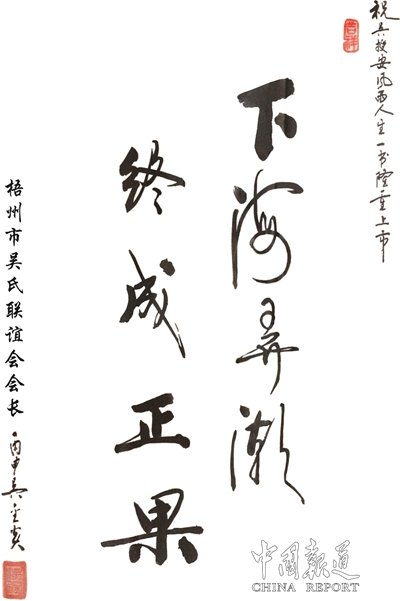 祝吴振安风雨人生一书隆重上市
下海弄潮
终成正果
梧州市吴氏联谊会会长
丙申吴
中国报道
CHINA REPORT